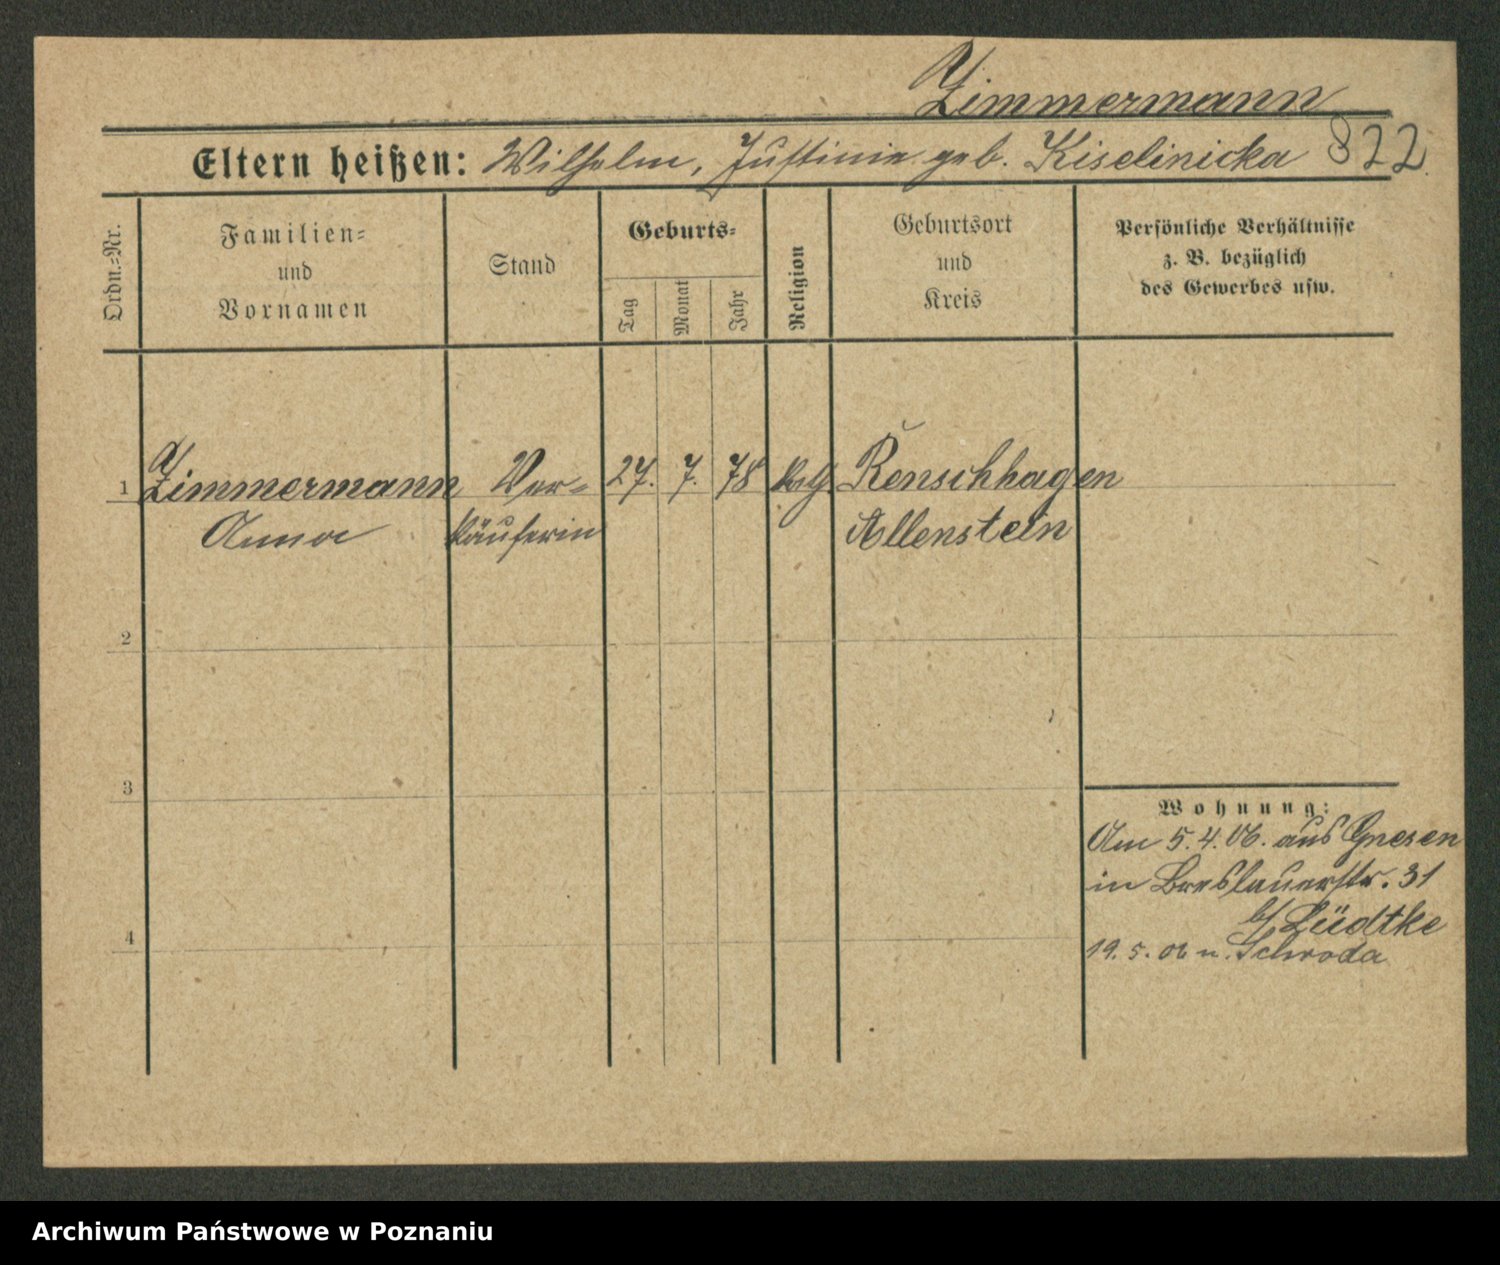 Zimmermann
Eltern heißen: Wilhelm, Justinie geb. Kiselinicka 822.
Ordn.=Nr.
Familien=
und
Vornamen
Stand
Geburts=
Tag
Monat
Jahr
Religion
Geburtsort
und
Kreis
Persönliche Verhältnisse
z. B. bezüglich
des Gewerbes usw.
1 Zimmermann Ver= 27. 7. 78 kath Renschhagen
Anna käuferin Allenstein
2
3
Wohnung:
Am 5.4.06. aus Gnesen
in Breslauerstr. 31
b/ Lüdtke
4
19. 5. 06 n. Schroda
Archiwum Państwowe w Poznaniu